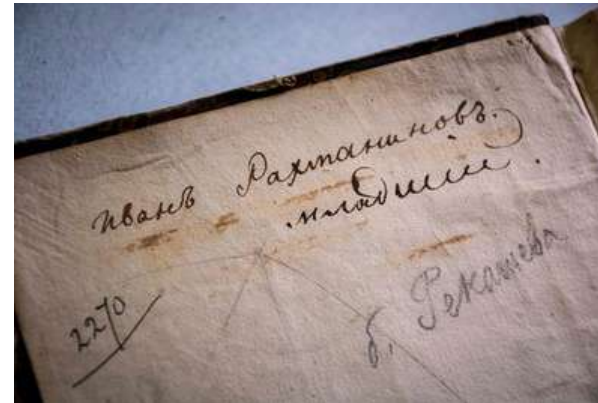 Иванъ Рахманиновъ.
младшій.
2270
б. Рекашева